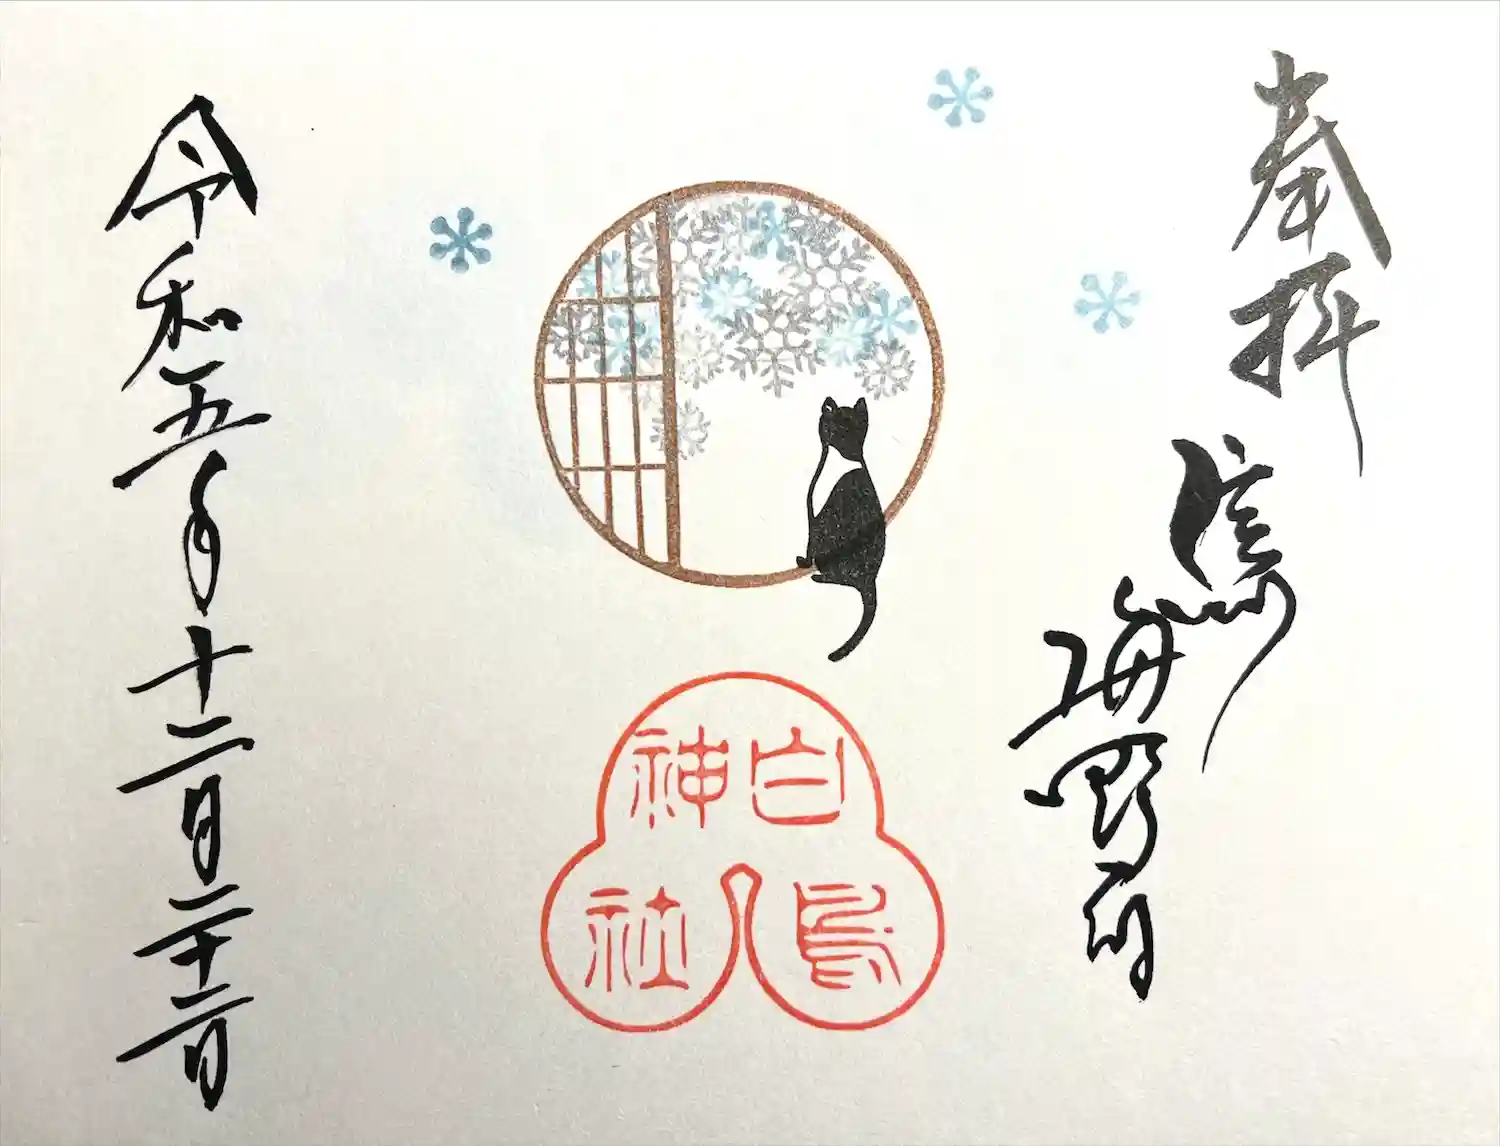 奉拝
信州
海野宿
白鳥神社
令和五年十二月二十二日